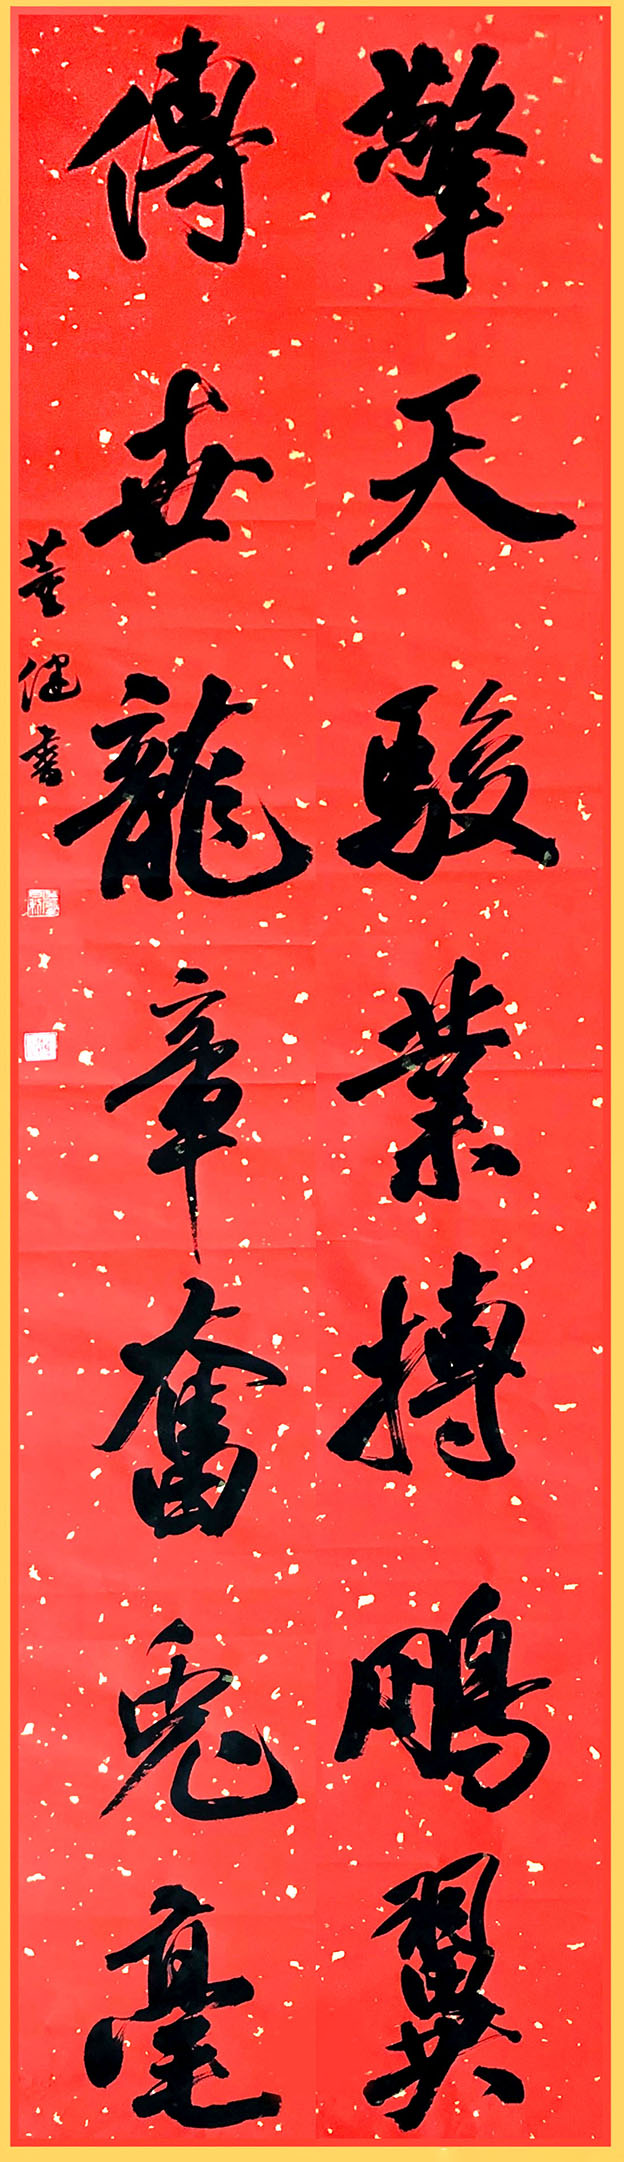 擎天駿業搏鵬翼
傳世龍章奮兔毫
董健書